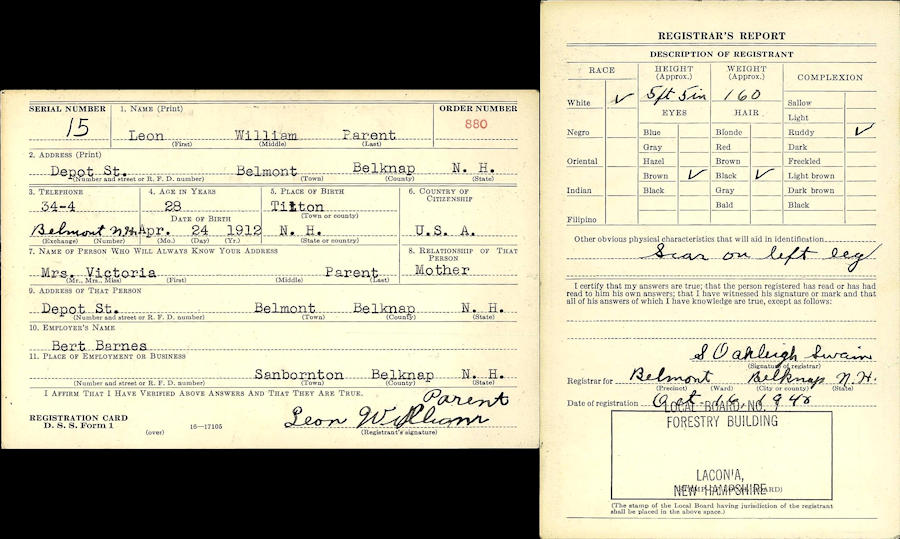 SERIAL NUMBER 1. NAME (Print) ORDER NUMBER
15 Leon William Parent 880
(First) (Middle) (Last)
2. ADDRESS (Print)
Depot St. Belmont Belknap N. H.
(Number and street or R. F. D. number) (Town) (County) (State)
3. TELEPHONE 4. AGE IN YEARS 5. PLACE OF BIRTH 6. COUNTRY OF CITIZENSHIP
34-4 28 Tilton
DATE OF BIRTH (Town or county)
Belmont N.H. Apr. 24 1912 N. H. U. S. A.
(Exchange) (Number) (Mo.) (Day) (Yr.) (State or country)
7. NAME OF PERSON WHO WILL ALWAYS KNOW YOUR ADDRESS 8. RELATIONSHIP OF THAT PERSON
Mrs. Victoria Parent Mother
(Mr., Mrs., Miss) (First) (Middle) (Last)
9. ADDRESS OF THAT PERSON
Depot St. Belmont Belknap N. H.
(Number and street or R. F. D. number) (Town) (County) (State)
10. EMPLOYER'S NAME
Bert Barnes
11. PLACE OF EMPLOYMENT OR BUSINESS
Sanbornton Belknap N. H.
(Number and street or R. F. D. number) (Town) (County) (State)
I AFFIRM THAT I HAVE VERIFIED ABOVE ANSWERS AND THAT THEY ARE TRUE.
Parent
REGISTRATION CARD Leon William
D. S. S. Form 1 (over) 16—17105 (Registrant's signature)
REGISTRAR'S REPORT
DESCRIPTION OF REGISTRANT
RACE HEIGHT (Approx.) WEIGHT (Approx.) COMPLEXION
White ✓ 5ft 5in 160 Sallow
EYES HAIR Light
Negro Blue Blonde Ruddy ✓
Gray Red Dark
Oriental Hazel Brown Freckled
Brown ✓ Black ✓ Light brown
Indian Black Gray Dark brown
Bald Black
Filipino
Other obvious physical characteristics that will aid in identification
Scar on left leg
I certify that my answers are true; that the person registered has read or has had
read to him his own answers; that I have witnessed his signature or mark and that
all of his answers of which I have knowledge are true, except as follows:
S Oakleigh Swain
(Signature of registrar)
Registrar for Belmont Belknap N.H.
(Precinct) (Ward) (City or county) (State)
Date of registration Oct. 16, 1940
LOCAL BOARD NO. 7
FORESTRY BUILDING
LACONIA,
NEW HAMPSHIRE
(The stamp of the Local Board having jurisdiction of the registrant
shall be placed in the above space.)